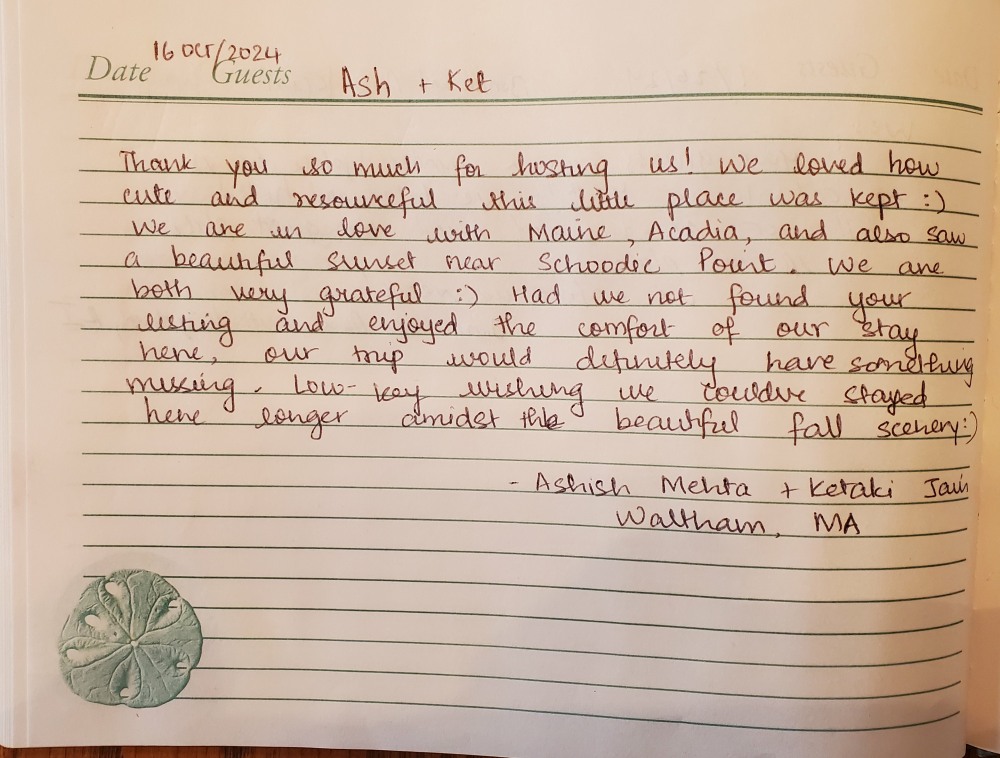 16 OCT/2024
Date Guests Ash + Ket
Thank you so much for hosting us! We loved how
cute and resourceful this little place was kept :)
We are in love with Maine, Acadia, and also saw
a beautiful sunset near Schoodic Point. We are
both very grateful :) Had we not found your
listing and enjoyed the comfort of our stay
here, our trip would definitely have something
missing. Low-key wishing we could've stayed
here longer amidst the beautiful fall scenery:)
- Ashish Mehta + Ketaki Jain
Waltham, MA